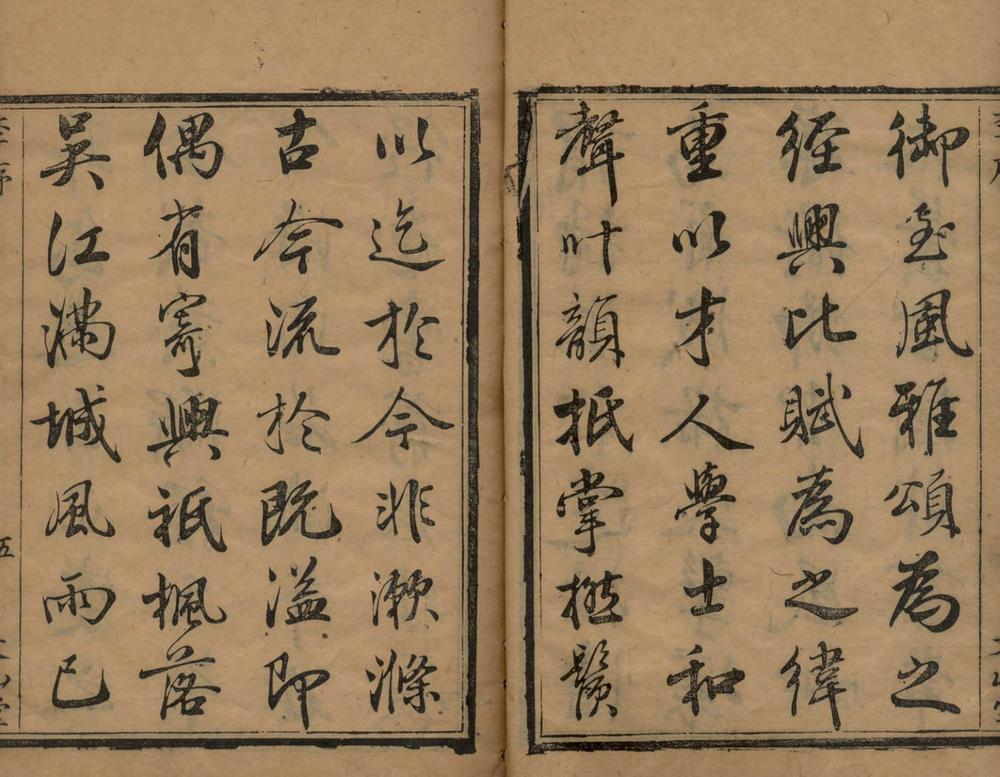 御製風雅頌為之
經興比賦為之緯
重以才人學士和
聲叶韻抵掌撚鬚
以迄於今非漱滌
古今流於既溢即
偶有寄興祇楓落
吳江滿城風雨已
五